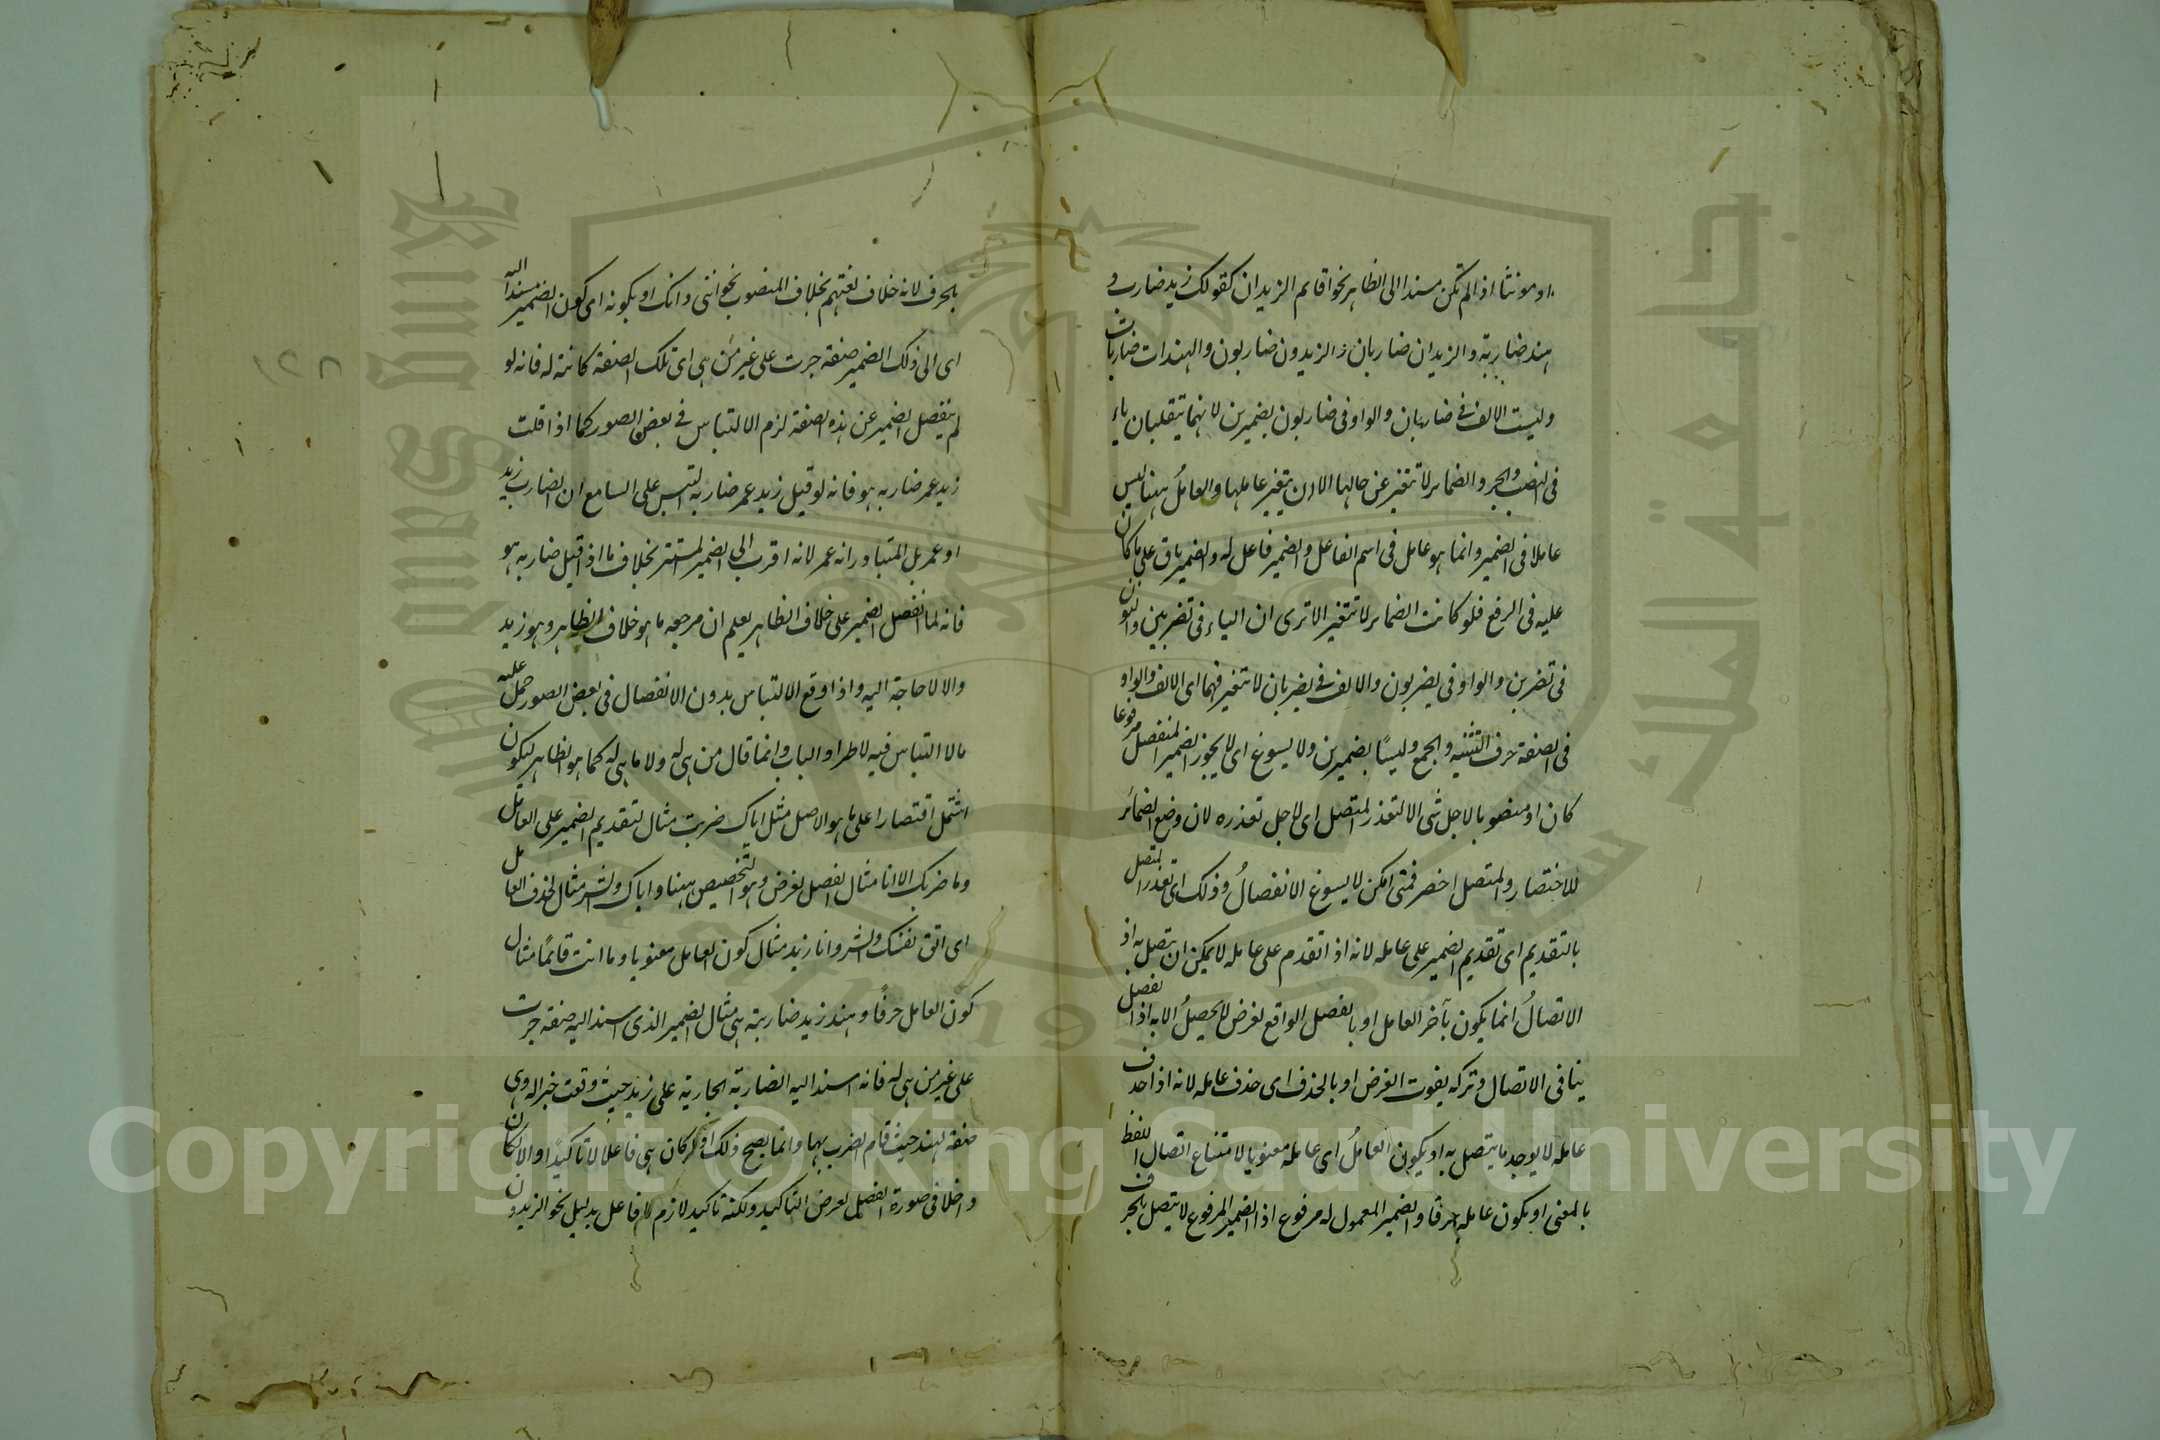 او مونثا اذا لم تكن مسندا الى الظاهر نحو اقايم الزيدان كقولك زيد ضارب و
هند ضاربة والزيدان ضاربان والزيدون ضاربون والهندات ضاربات
وليست الالف فى ضاربان والواو فى ضاربون بضميرين لانهما يتقلبان ياء
فى النصب والجر والضماير لا تتغير عن حالها الا ان يتغير عاملها والعامل ههنا ليس
عاملا فى الضمير وانما هو عامل فى اسم الفاعل والضمير فاعل له والضمير باق على ما كان
عليه فى الرفع فلو كانت الضماير لا تتغير الا ترى ان الياء فى تضربين والنون
فى تضربن والواو فى يضربون والالف فى يضربان لا تتغير فهما اى الالف والواو
فى الصفة حرف التثنيه والجمع وليسا بضميرين ولا يسوغ اى لا يجوز الضمير المنفصل مرفوعا
كان او منصوبا لاجل شى الا لتعذر المتصل اى لاجل تعذره لان وضع الضمائر
للاختصار والمتصل اخصر فمتى امكن لا يسوغ الانفصال وذلك اى تعذر المتصل
بالتقديم اى تقديم الضمير على عامله لانه اذا تقدم على عامله لا يمكن ان يتصل به اذ
الاتصال انما يكون بآخر العامل او بالفصل الواقع لغرض لا يحصل الا به اذ الفصل
ينافى الاتصال وتركه يفوت الغرض او بالحذف اى حذف عامله لانه اذا حذف
عامله لا يوجد ما يتصل به او يكون العامل اى عامله معنويا لامتناع اتصال اللفظ
بالمعنى او يكون عامله حرفا والضمير المعمول له مرفوع اذ الضمير المرفوع لا يتصل بالحرف
بالحرف لانه خلاف لغتهم بخلاف المنصوب نحو اننى وانك او بكونه اى كون الضمير مسندا اليه
اى الى ذلك الضمير صفة جرت على غير من هى اى تلك الصفة كائنة له فانه لو
لم ينفصل الضمير عن هذه الصفة لزم الالتباس فى بعض الصور كما اذا قلت
زيد عمر ضاربه هو فانه لو قيل زيد عمر ضاربه التبس على السامع ان الضارب زيد
او عمر بل المتبادر انه عمر لانه اقرب الى الضمير المستتر بخلاف ما اذا قيل ضاربه هو
فانه لما انفصل الضمير على خلاف الظاهر يعلم ان مرجعه ما هو خلاف الظاهر وهو زيد
والا لا حاجة اليه واذا وقع الالتباس بدون الانفصال فى بعض الصور حمل عليه
مالا التباس فيه لاطراد الباب وانما قال من هى له ولا ما هى له كما هو الظاهر ليكون
اشمل اقتصارا على ما هو الاصل مثل اياك ضربت مثال لتقديم الضمير على العامل
وما ضربك الا انا مثال الفصل لغرض وهو التخصيص ههنا واياك والشر مثال لحذف العامل
اى اتق نفسك والشر وانا زيد مثال كون العامل معنويا وما انت قائما مثال
كون العامل حرفا وهند زيد ضاربته هى مثال الضمير الذى اسند اليه صفة جرت
على غير من هى له فانه اسند اليه الضاربة الجارية على زيد حيث وقعت خبرا له وهى
صفة لهند حيث قام الضرب بها وانما يصح ذلك اذ كان هى فاعلا لا تاكيدا والا لكان
داخلا فى صورة الفصل لغرض التاكيد ولكنه تاكيد لازم لا فاعل بدليل نحو الزيدون
١٢٨
Copyright © King Saud University